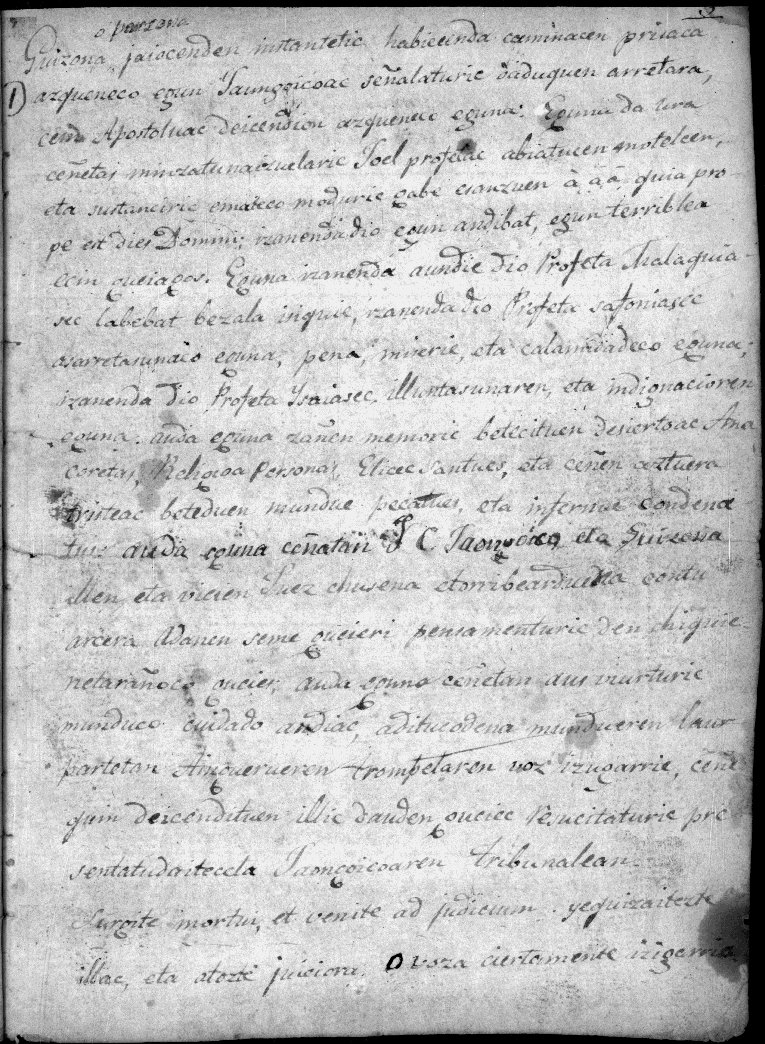 o persona
3
Guizona, jaiocenden instantetic habicenda caminacen prisaca
1) azqueneco egun Jaungoicoac señalaturic dáduquen arretara,
ceiñ Apostoluac deicendion azqueneco eguna: Egunu da ura
ceñetaz minzatunaizuelaric Joel profetac abiatucen motelcen,
eta sustanciric emateco moduric gabe esanzuen à, à, à, quia pro
pe est dies Domini; izanendá dio egun andibat, egun terriblea
ceiñ gueiagos. Eguna izanenda aundie dio Profeta Malaquia-
sec labebat bezala iriquie, izanenda dio Profeta Safoniasec
asarretasunaco eguna, pena, miserie, eta calamidadeco eguna;
izanenda dio Profeta Ysaiasec, illuntasunaren, eta indignacioren
eguna. auda eguna zañen memorie betecituen desiertoac Ana
coretas, Religioso personas, Elicec santues, eta ceñen aztuera
tristeac beteduen mundue pecatues, eta infernue condena
tus: auda eguna ceñetan J C Jaongoico, eta Guizona
illen, eta vicien Juez chusena etorribearduena contu
arcera Adanen seme gucieri pensamenturic den chiquie-
netarañoco gucies, auda eguna ceñetan aus viurturic
munduco cuidado andiac, aditucodena mundueren laur
partetan Ainguerueren trompetaren voz izugarrie, ceñe
quin deicendituen illic dauden guciec resucitaturic pre
sentatudaitecela Jaongoicoaren tribunalean.
Surgite mortui, et venite ad judicium. yequizaitezte
illac, eta atozte juiciora. O voza ciertamente izigarria